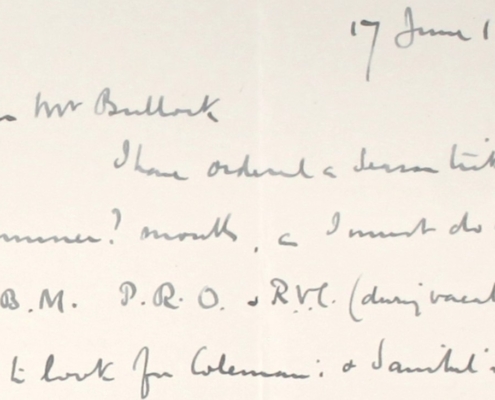 17 June 1
Mr Bullock
I have ordered a season tick
summer? month, I must do
B.M. P.R.O. & R.V.C. (during vacat
to look for Coleman: & Sainbel's